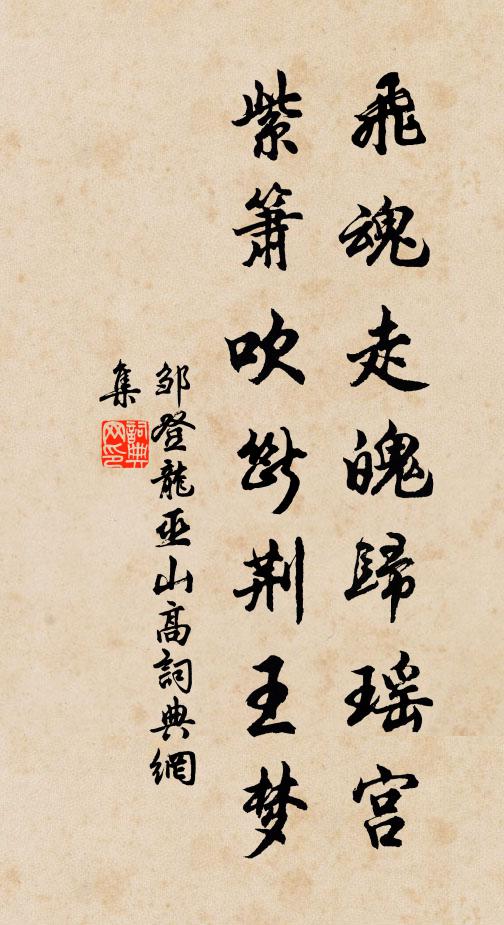 飛魂走魄歸瑶宫
紫簫吹斷荆王梦
邹登龍巫山高詞典網
集
詞典
网印